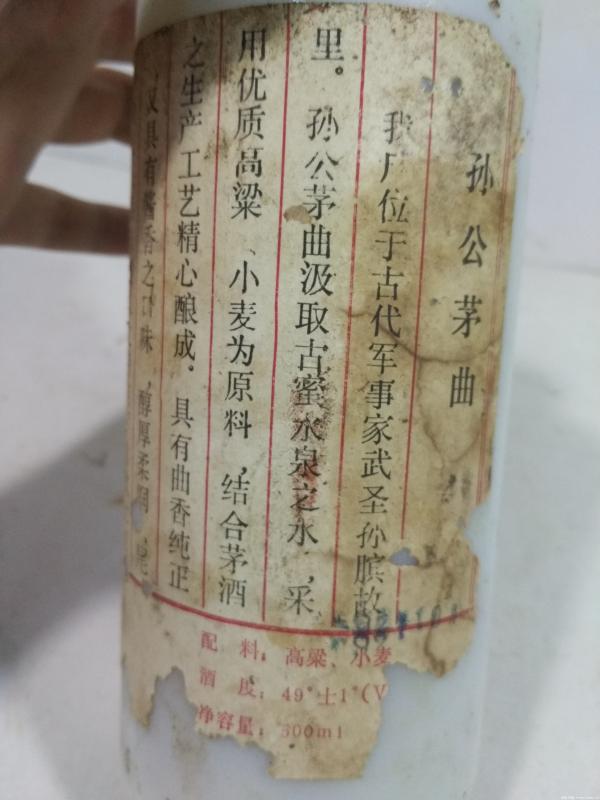 孙公茅曲
我厂位于古代军事家武圣孙膑故
里。孙公茅曲汲取古蜜水泉之水,采
用优质高粱、小麦为原料,结合茅酒
之生产工艺精心酿成。具有曲香纯正
又具有酱香之口味,醇厚柔润,尾
配 料:高粱、小麦
酒 度:49°土1°(V
净容量:500ml